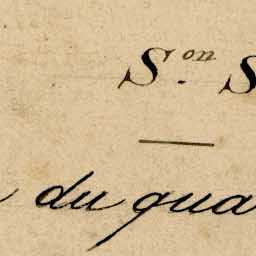 S.on S
du qua